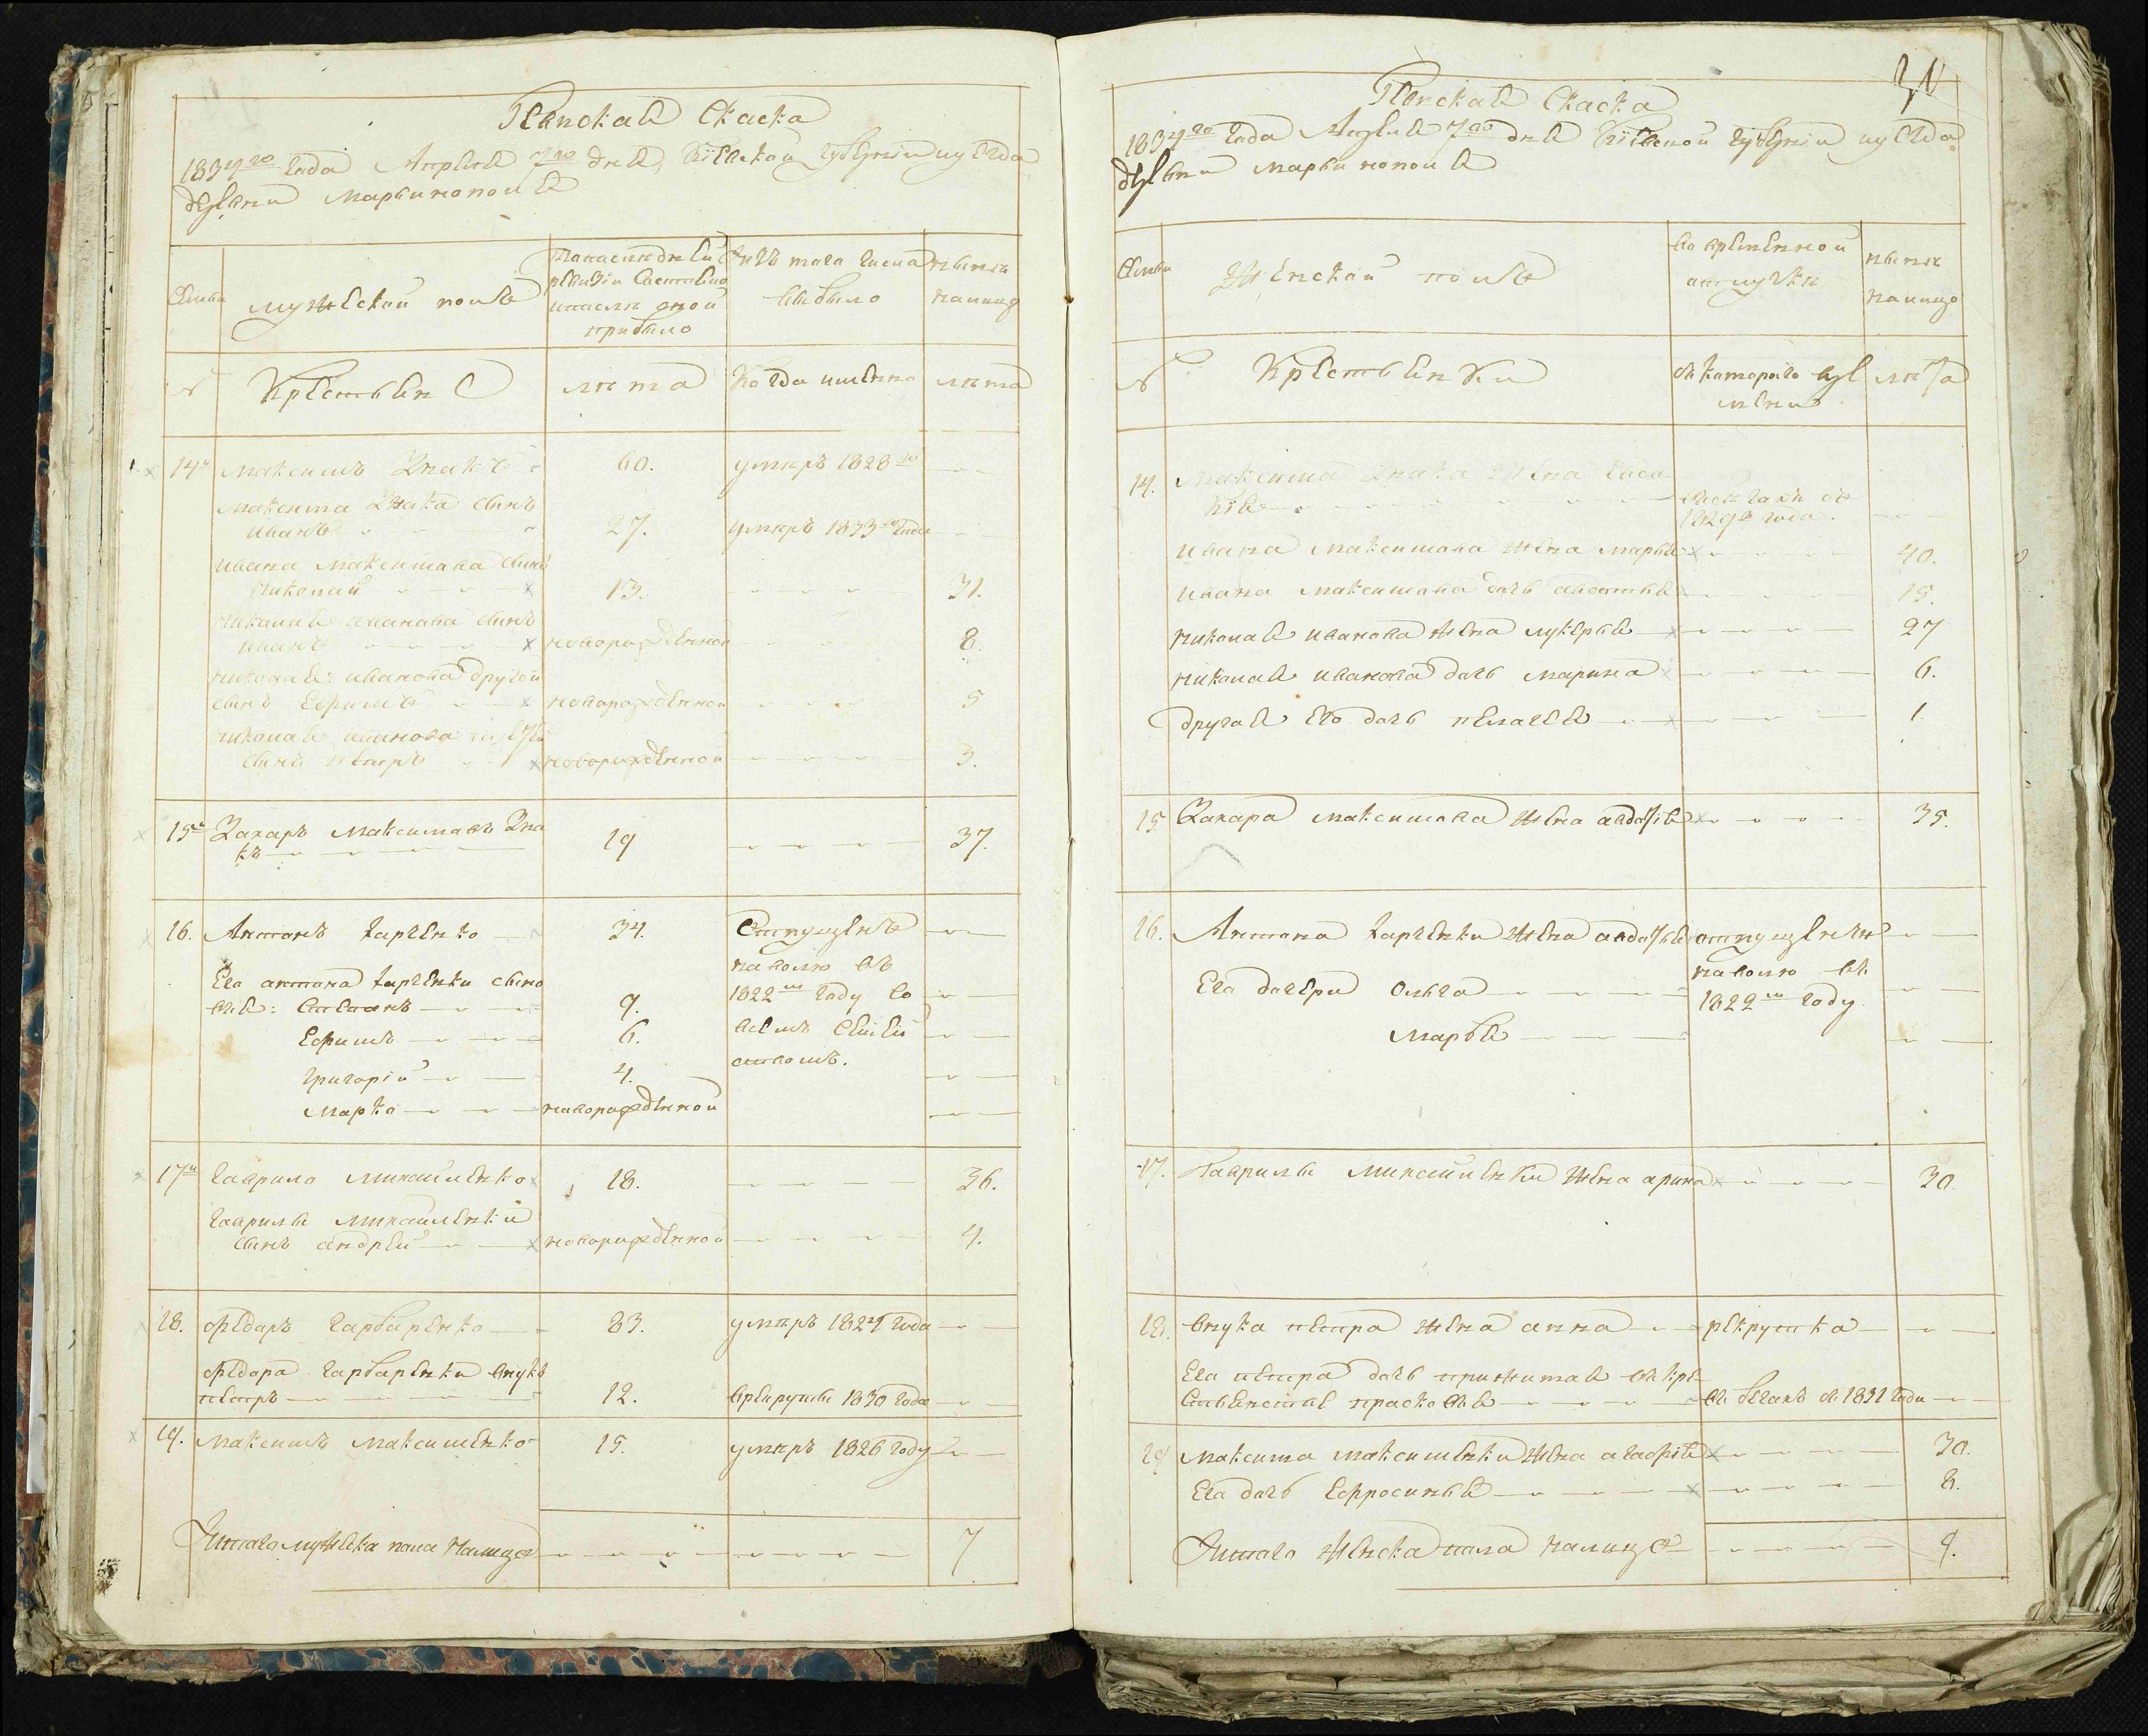 Ревская Скаска
1834го года Апреля 7го дня, Кіевской губерніи уезда
деревни Марьинополя
Семьи
мужеской полъ
По последней ревизіи Состояло и после оной прибыло
Изъ того числа выбыло
ныне налицо
№
Крестьяне
лета
Когда имянно
лета
14й Максимъ Знакъ 60. умеръ 1828го
Максима Знака сынъ
Иванъ 27. умеръ 1833го года
Ивана Максимова сынъ
Николай 13. 31.
Николая Иванова сынъ
Иванъ новорожденной 8.
Николая Иванова другой
сынъ Ефимъ новорожденной 5
Николая Иванова третій
сынъ Петръ новорожденной 3.
15й Захаръ Максимовъ Зна
къ 19 37.
16. Антонъ Харченко 34. Отпущенъ
Его Антона Харченки сыно
на волю въ
вья: Степанъ 9. 1822м году со
Ефимъ 6. всемъ Семей
Григорій 4. ствомъ.
Марко новорожденной
17й Гаврило Михайленко 18. 36.
Гаврилы Михайленки
сынъ Андрей новорожденной 4.
18. Федоръ Гарбаренко 83. умеръ 1824 года
Федора Гарбаренки внукъ
Петръ 12. в рекруты 1830 года
19. Максимъ Максименко 15. умеръ 1826 году
Итого мужеска пола налицо 7
Ревская Скаска
1834го года Апреля 7го дня Кіевской губерніи уезда
деревни Марьинополя
Семьи
Женской полъ
Во временной отлучке
ныне налицо
№
Крестьянки
съ котораго вре
мени
лета
14. Максима Знака жена
1829го года.
Ивана Максимова жена Марья 40.
Ивана Максимова дочь Авдотья 15.
Николая Иванова жена Лукерья 27
Николая Иванова дочь Марина 6.
Другая его дочь Пелагея 1.
15 Захара Максимова жена Авдотья 35.
16. Антона Харченки жена Авдотья отпущены
на волю въ
Его дочери Ольга 1822м году.
Марья
17. Гаврилы Михайленки жена Арина 30.
18. Внука Петра жена Анна рекрутка
Его Петра дочь прижитая въ кре
стьянстве Прасковья въ бегахъ съ 1831 года
19 Максима Максименки жена Агафія 30.
Его дочь Ефросинья 8.
Итого женска пола налицо 9.